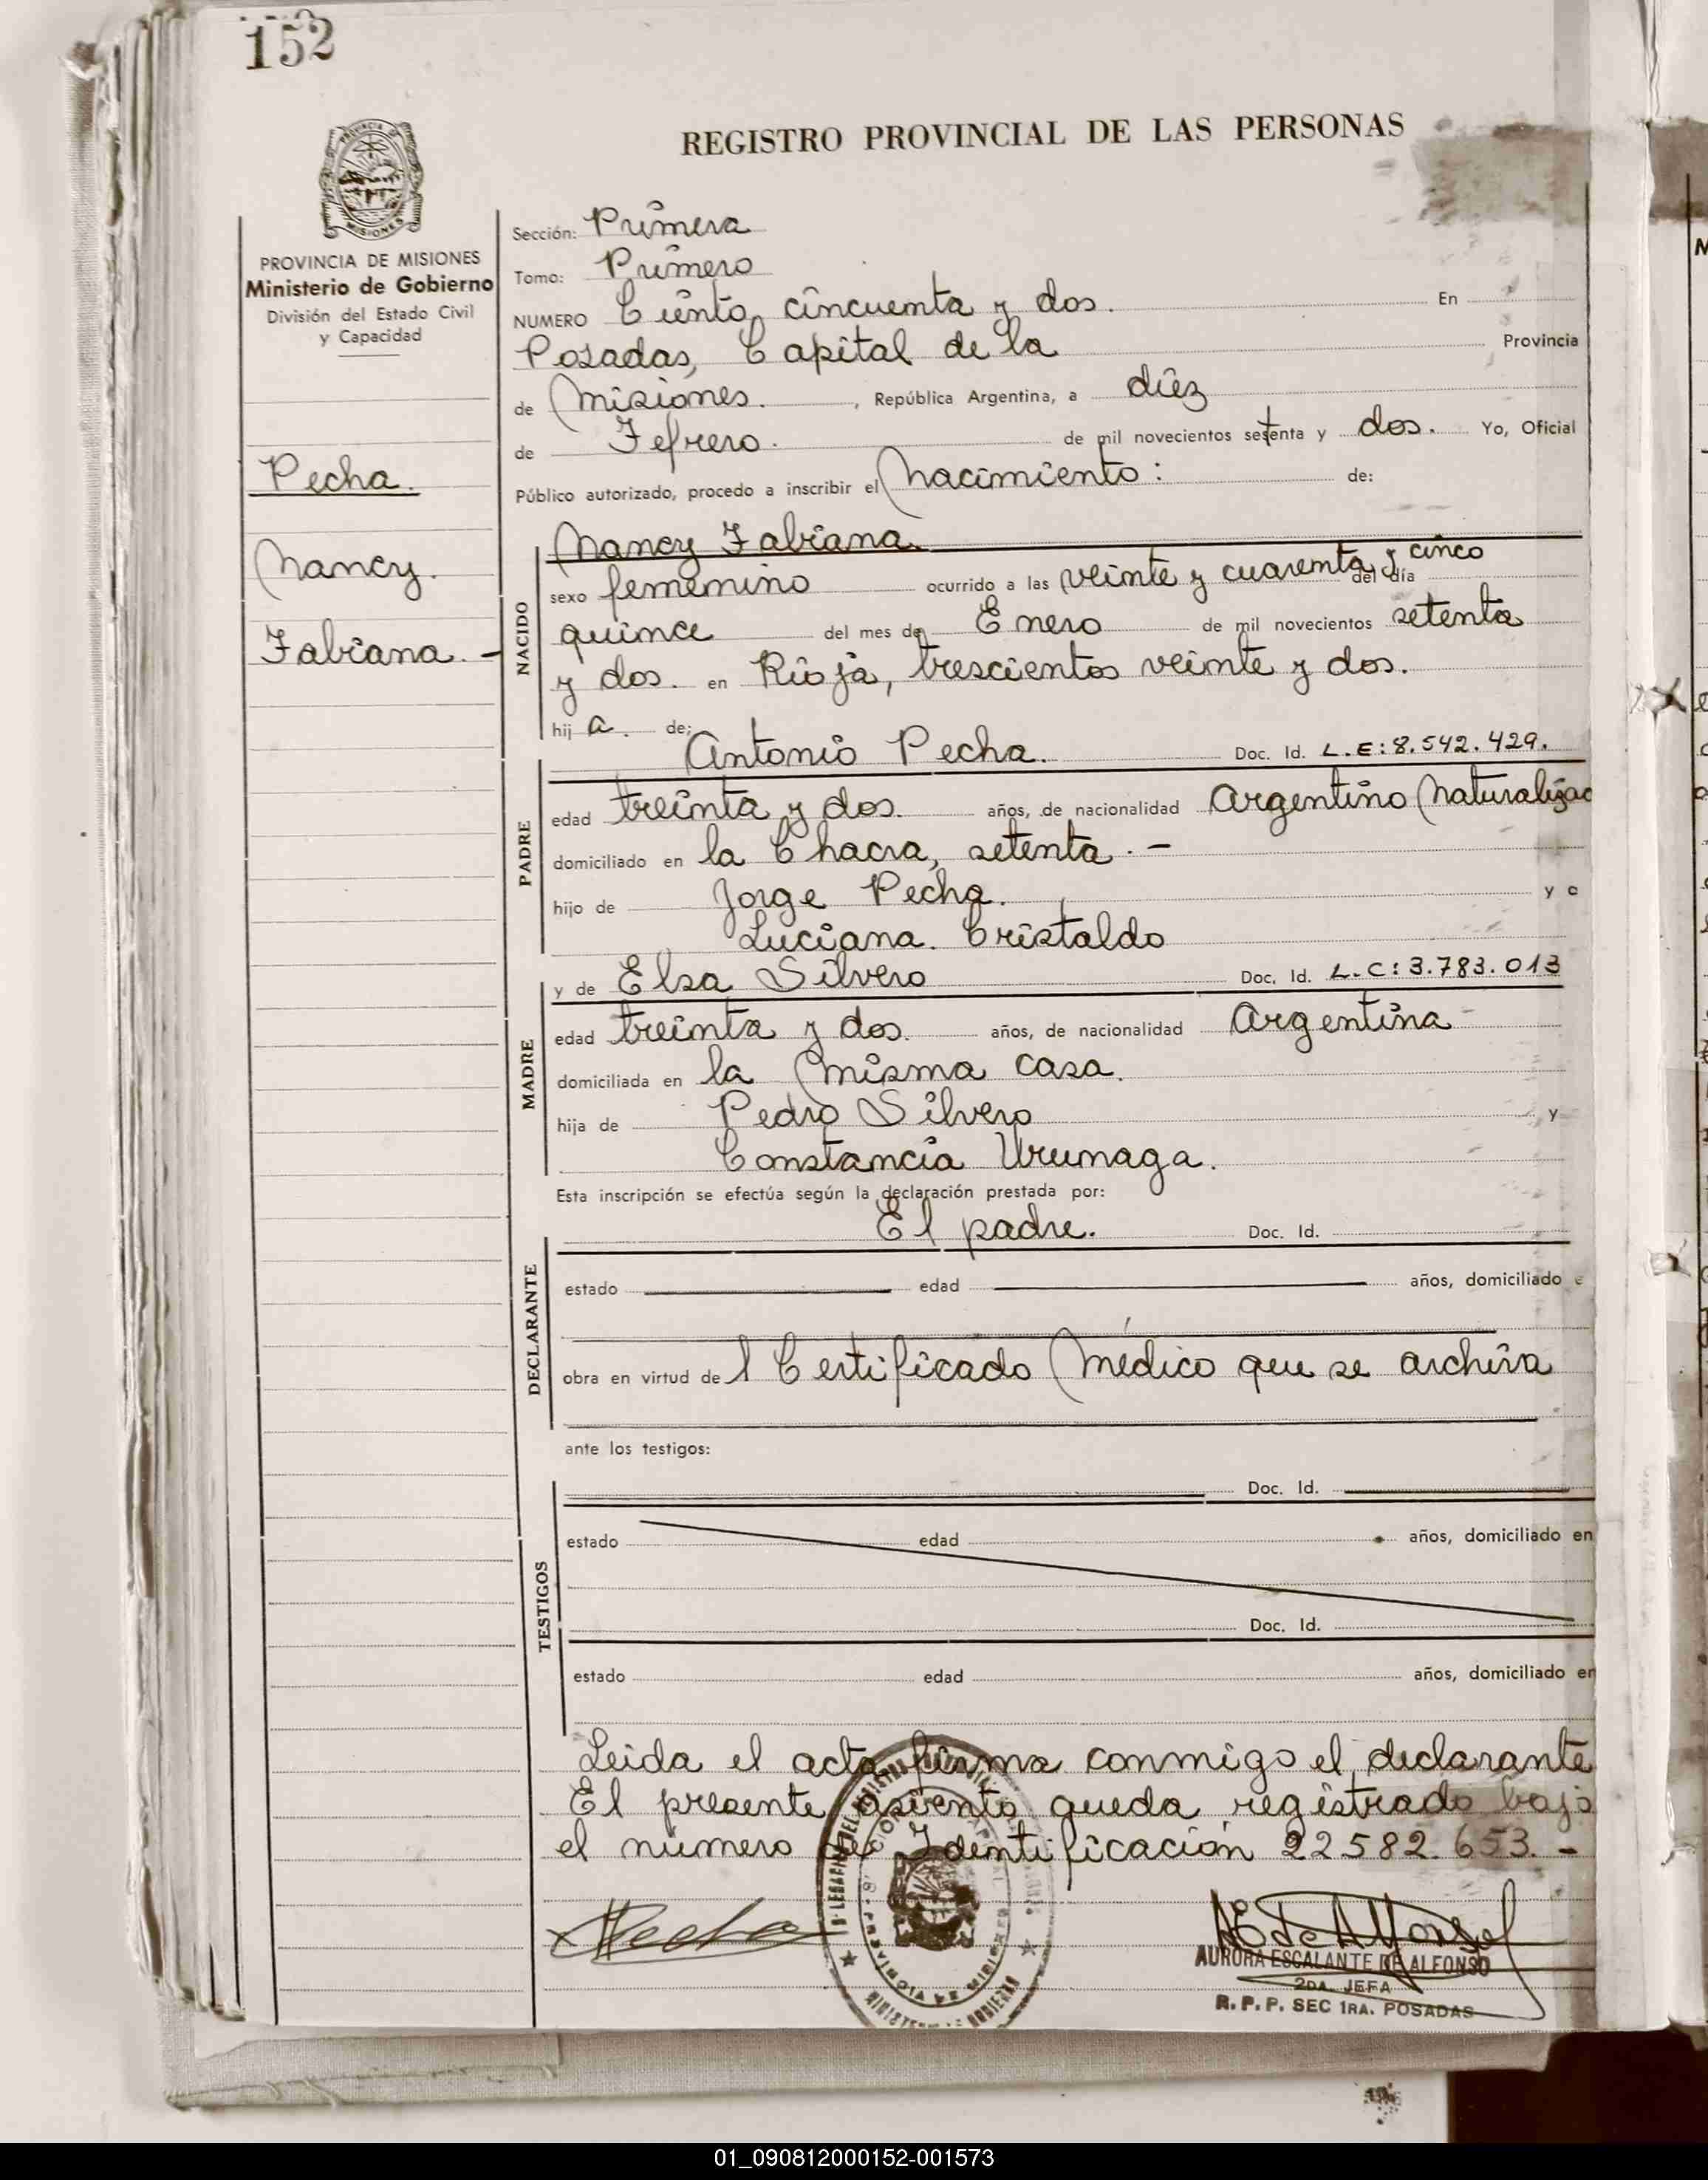 152
REGISTRO PROVINCIAL DE LAS PERSONAS
PROVINCIA DE MISIONES
PROVINCIA DE MISIONES
Ministerio de Gobierno
División del Estado Civil
y Capacidad
Pecha.
Nancy.
Fabiana. -
Sección: Primera
Tomo: Primero
NUMERO Ciento cincuenta y dos. En
Posadas, Capital de la Provincia
de Misiones. , República Argentina, a diez
de Febrero. de mil novecientos setenta y dos. Yo, Oficial
Público autorizado, procedo a inscribir el Nacimiento: de:
NACIDO
Nancy Fabiana.
sexo femenino ocurrido a las veinte y cuarenta y cinco del día
quince del mes de Enero de mil novecientos setenta
y dos. en Rioja, trescientos veinte y dos.
hij a. de:
Antonio Pecha. Doc. Id. L.E:8.542.429.
PADRE
edad treinta y dos. años, de nacionalidad Argentino Naturalizad
domiciliado en la Chacra, setenta. -
hijo de Jorge Pecha. y d
Luciana. Cristaldo
y de Elsa Silvero Doc. Id. L.C:3.783.013
MADRE
edad treinta y dos. años, de nacionalidad Argentina
domiciliada en la misma casa.
hija de Pedro Silvero y
Constancia Urunaga.
Esta inscripción se efectúa según la declaración prestada por:
El padre. Doc. Id.
DECLARANTE
estado edad años, domiciliado e
obra en virtud de l Certificado Médico que se archiva
ante los testigos:
Doc. Id.
TESTIGOS
estado edad años, domiciliado en
Doc. Id.
estado edad años, domiciliado en
Leida el acta firma conmigo el declarante
El presente asiento queda registrado bajo
el número de Identificación 22582.653. -
Pecha
AE de Alfonso
AURORA ESCALANTE DE ALFONSO
2DA. JEFA
R. P. P. SEC 1RA. POSADAS
01_090812000152-001573